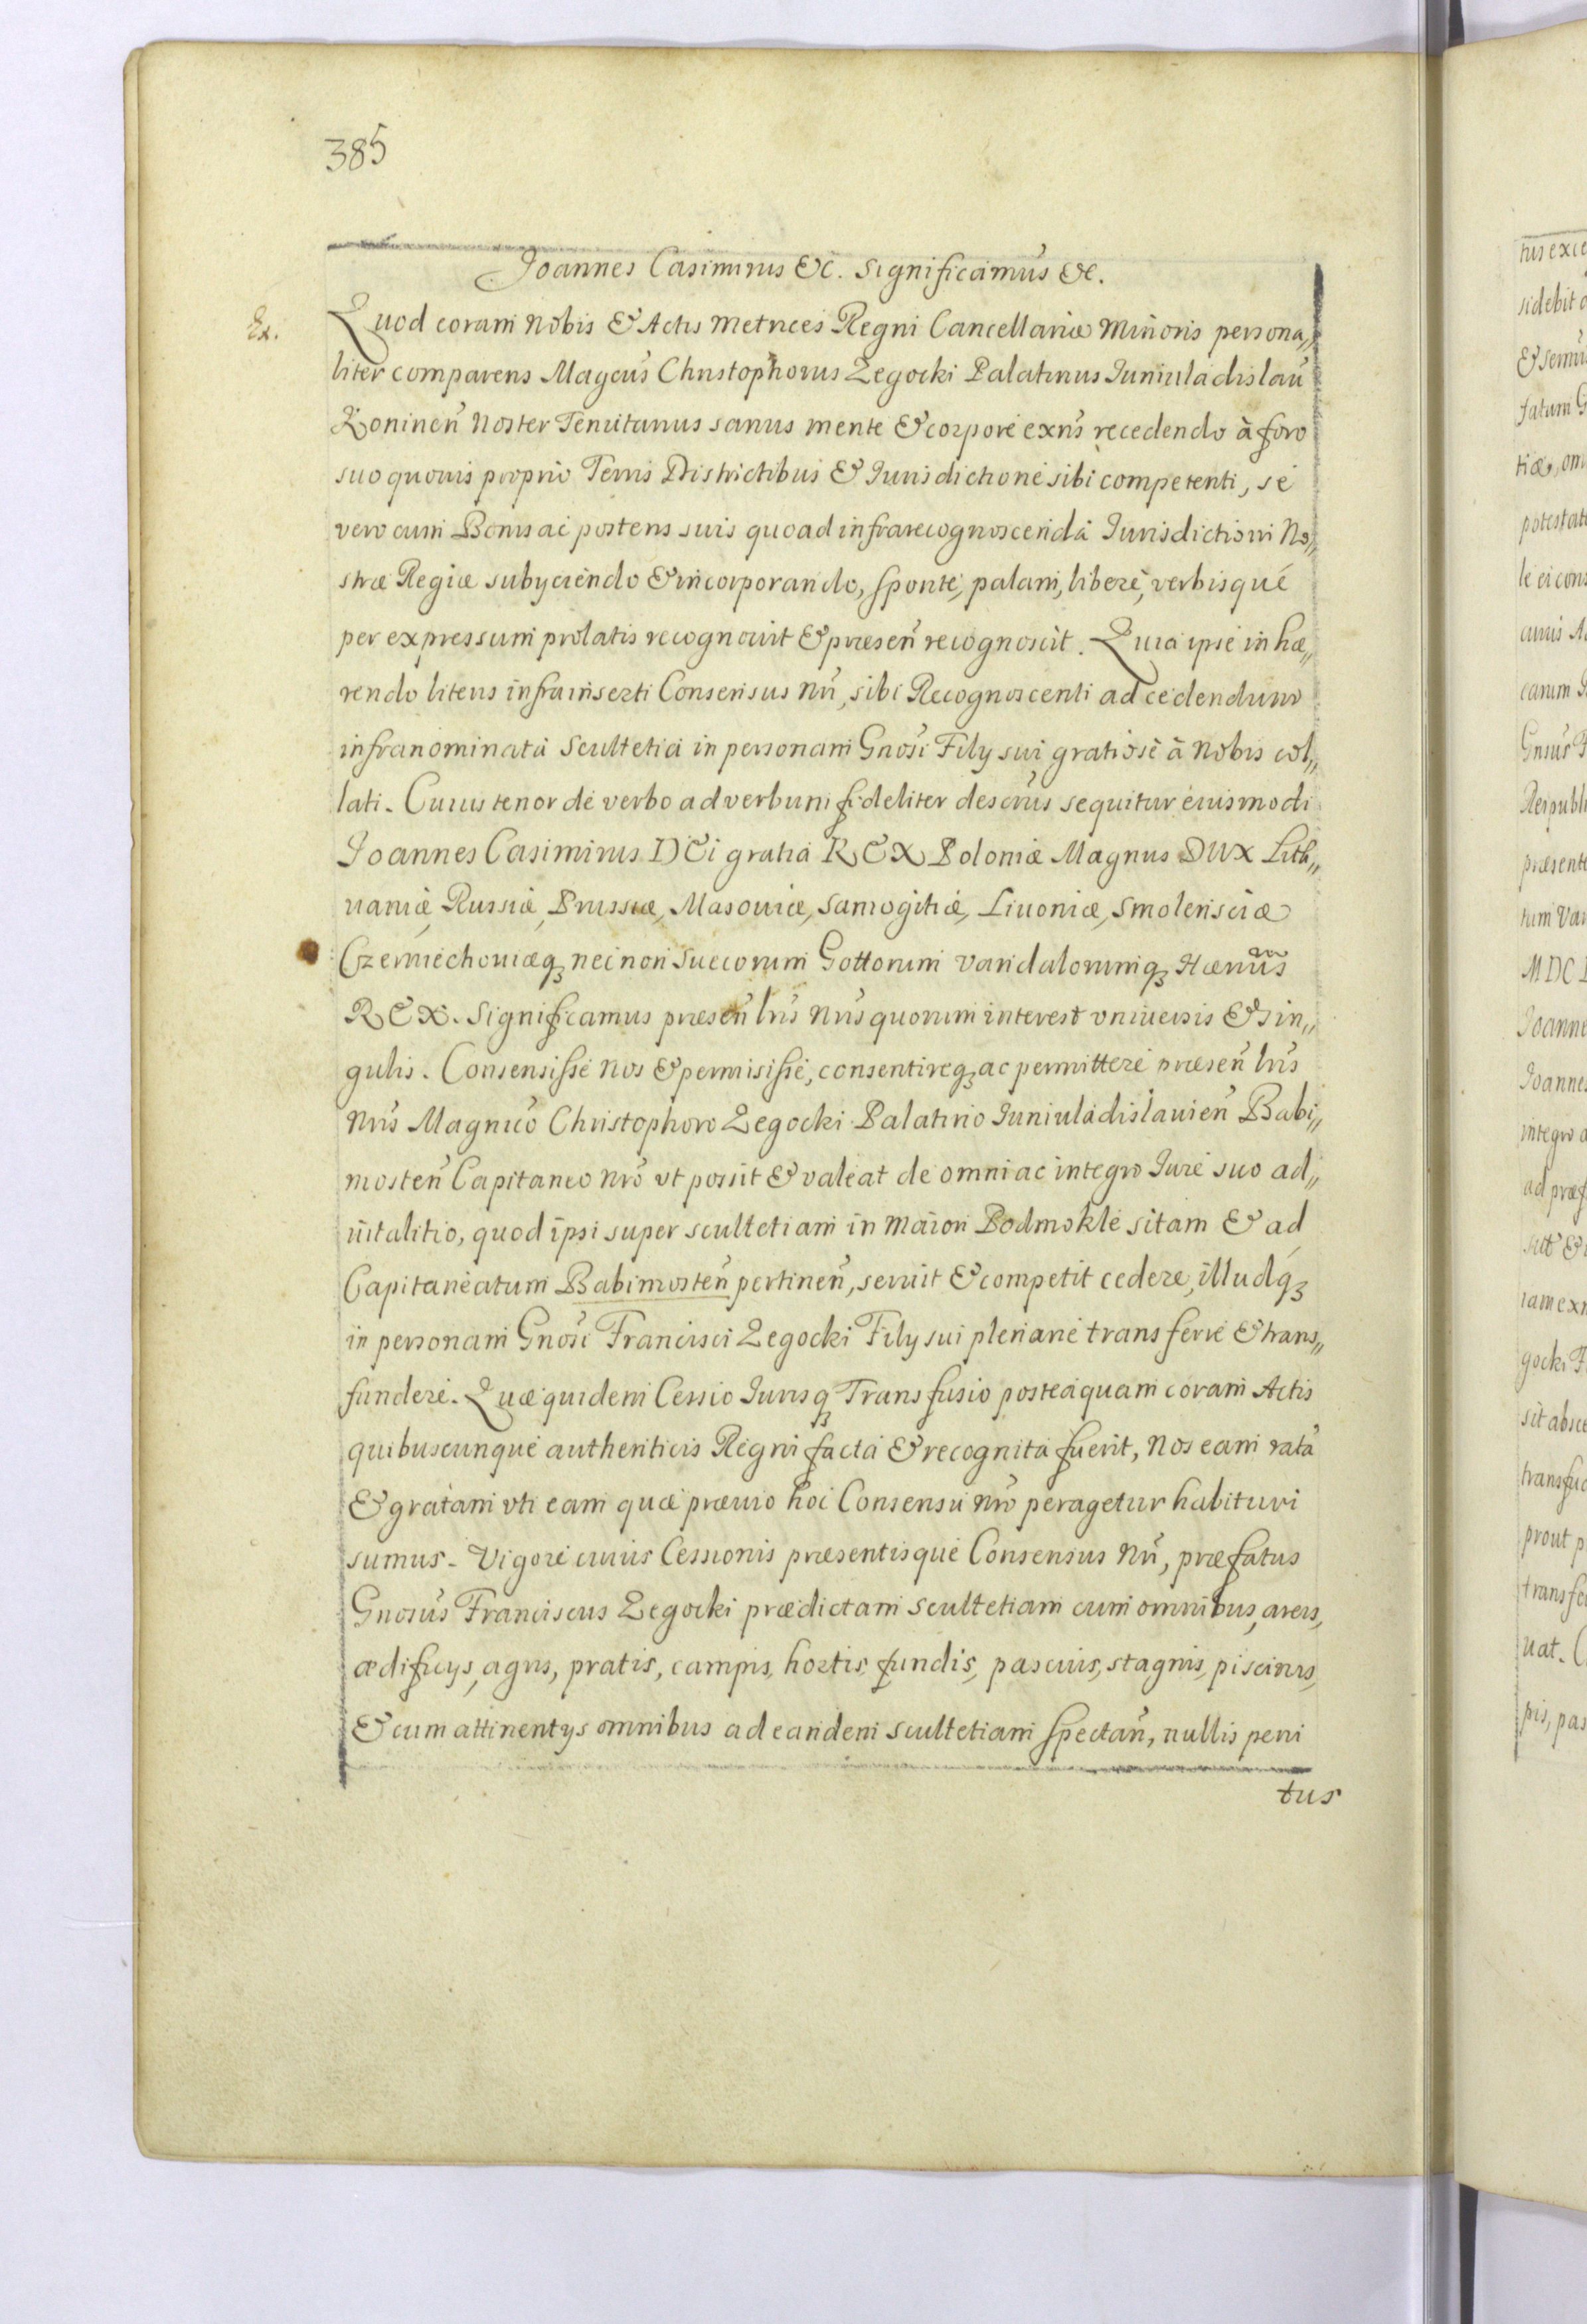 385
Joannes Casimirus &c. Significamus &c.
Ex. Quod coram Nobis & Actis Metrices Regni Cancellariæ Minoris persona„
liter comparens Magcus Christophorus Zegocki Palatinus Juniuladislau
Koninen Noster Tenutarius sanus mente & corpore exns recedendo à foro
suo quouis proprio Terris Districtibus & Jurisdictione sibi competenti, se
vero cum Bonis ac posteris suis quoad infrarecognoscenda Jurisdictioni No„
stræ Regiæ subyciendo & incorporando, sponte, palam, libere, verbisque
per expressum prolatis recognouit & præsen recognoscit. Quia ipse in hæ„
rendo literis infrainserti Consensus Nri, sibi Recognoscenti ad cedendum
infranominata Scultetia in personam Gnosi Fily sui gratiose à Nobis col„
lati. Cuius tenor de verbo ad verbum fideliter descrus sequitur eiusmodi
Joannes Casimirus DEi gratia REX Poloniæ Magnus DUX Lith„
uaniæ, Russiæ, Prussiæ, Masouiæ, Samogitiæ, Liuoniæ, Smolensciæ
Czerniechouiæq3 necnon Suecorum Gottorum Vandalorumq3 Hærius
REX. Significamus præsen lris Nris quorum interest vniuersis & sin„
gulis. Consensisse Nos & permisisse, consentireq3 ac permittere præsen lris
Nris Magnico Christophoro Zegocki Palatino Juniuladislauien Babi„
mosten Capitaneo Nro vt possit & valeat de omni ac integro Jure suo ad„
uitalitio, quod ipsi super scultetiam in Maiori Podmokle sitam & ad
Capitaneatum Babimosten pertinen, seruit & competit cedere, illudq3
in personam Gnosi Francisci Zegocki Fily sui plenarie transferre & trans„
fundere. Quæ quidem Cessio Jurisq3 Transfusio posteaquam coram Actis
quibuscunque authenticis Regni facta & recognita fuerit, Nos eam rata
& gratam vti eam quæ præuio hoc Consensu Nro peragetur habituri
sumus. Vigore cuius Cessionis præsentisque Consensus Nri, præfatus
Gnosus Franciscus Zegocki prædictam scultetiam cum omnibus, areis,
ædificys, agris, pratis, campis, hortis, fundis, pascuis, stagnis, piscinis,
& cum attinentys omnibus ad eandem scultetiam spectan, nullis peni
tus